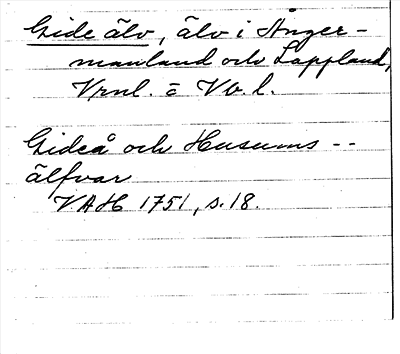 Gide älv, älv i Ånger-
manland och Lappland,
Vrnl. o Vb. l.
Gideå och Husums --
älfvar
VAH 1751, s. 18.